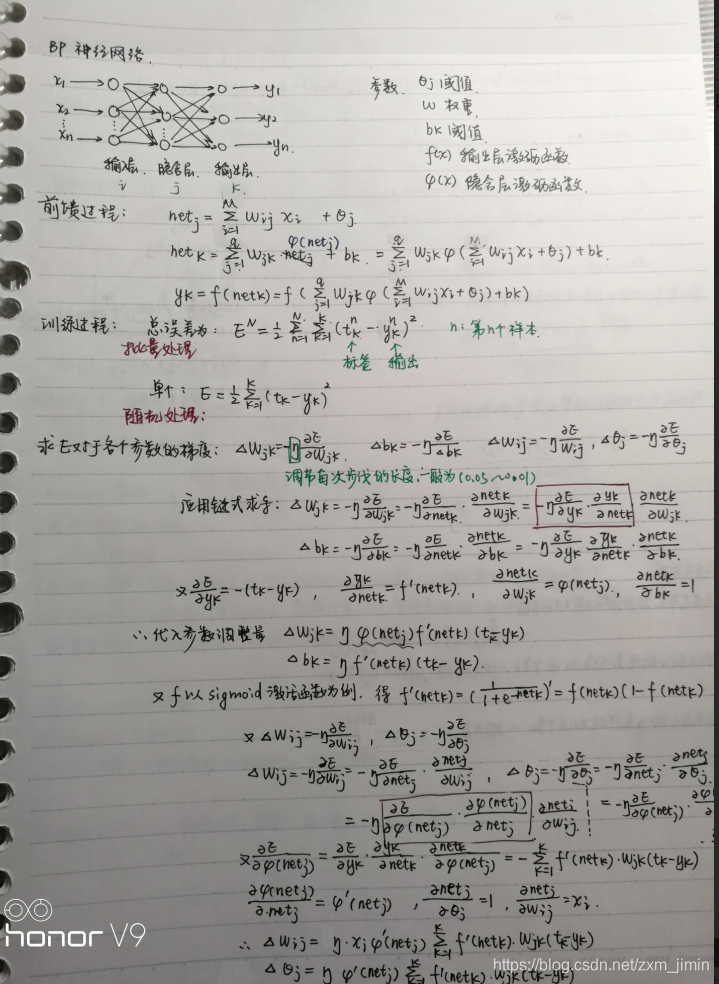 BP 神经网络.
x1 y1
x2 y2
xn yn.
输入层. 隐含层. 输出层.
i j k.
参数. θj 阈值.
w 权重.
bk 阈值
f(x) 输出层激励函数
φ(x) 隐含层激励函数.
前馈过程: netj = Σ_{i=1}^{M} wij xi + θj
netk = Σ_{j=1}^{q} wjk φ(netj) + bk. = Σ_{j=1}^{q} wjk φ(Σ_{i=1}^{M} wij xi + θj) + bk.
yk = f(netk) = f(Σ_{j=1}^{q} wjk φ(Σ_{i=1}^{M} wij xi + θj) + bk)
训练过程: 总误差为: E^N = 1/2 Σ_{n=1}^{N} Σ_{k=1}^{K} (tk^n - yk^n)^2. n: 第n个样本.
批量处理 ↑标签 ↑输出
单个: E = 1/2 Σ_{k=1}^{K} (tk - yk)^2
随机处理:
求E对于各个参数的梯度: △wjk = -η ∂E/∂wjk. △bk = -η ∂E/△bk △wij = -η ∂E/wij, △θj = -η ∂E/∂θj
调节每次步伐的长度, 一般为(0.05~0.01)
应用链式求导: △wjk = -η ∂E/∂wjk = -η ∂E/∂netk · ∂netk/∂wjk = -η ∂E/∂yk · ∂yk/∂netk · ∂netk/∂wjk.
△bk = -η ∂E/∂bk = -η ∂E/∂netk · ∂netk/∂bk = -η ∂E/∂yk · ∂yk/∂netk · ∂netk/∂bk.
又 ∂E/∂yk = -(tk-yk), ∂yk/∂netk = f'(netk). , ∂netk/∂wjk = φ(netj). , ∂netk/∂bk = 1
∴ 代入参数调整量 △wjk = η φ(netj) f'(netk) (tk-yk)
△bk = η f'(netk) (tk-yk).
又 f 以 sigmoid 激活函数为例. 得 f'(netk) = (1/(1+e^{-netk}))' = f(netk)(1-f(netk)
又 △wij = -η ∂E/∂wij , △θj = -η ∂E/∂θj
△wij = -η ∂E/∂wij = -η ∂E/∂netj · ∂netj/∂wij , △θj = -η ∂E/∂θj = -η ∂E/∂netj · ∂netj/∂θj.
= -η ∂E/∂φ(netj) · ∂φ(netj)/∂netj · ∂netj/∂wij. = -η ∂E/∂φ(netj) ·
又 ∂E/∂φ(netj) = ∂E/∂yk · ∂yk/∂netk · ∂netk/∂φ(netj) = -Σ_{k=1}^{K} f'(netk) · wjk (tk-yk)
∂φ(netj)/∂netj = φ'(netj) , ∂netj/∂θj = 1 , ∂netj/∂wij = xi.
∴ △wij = η · xi φ'(netj) Σ_{k=1}^{K} f'(netk) · wjk (tk-yk)
△θj = η φ'(netj) Σ_{k=1}^{K} f'(netk) · wjk (tk-yk)
honor V9
https://blog.csdn.net/zxm_jimin